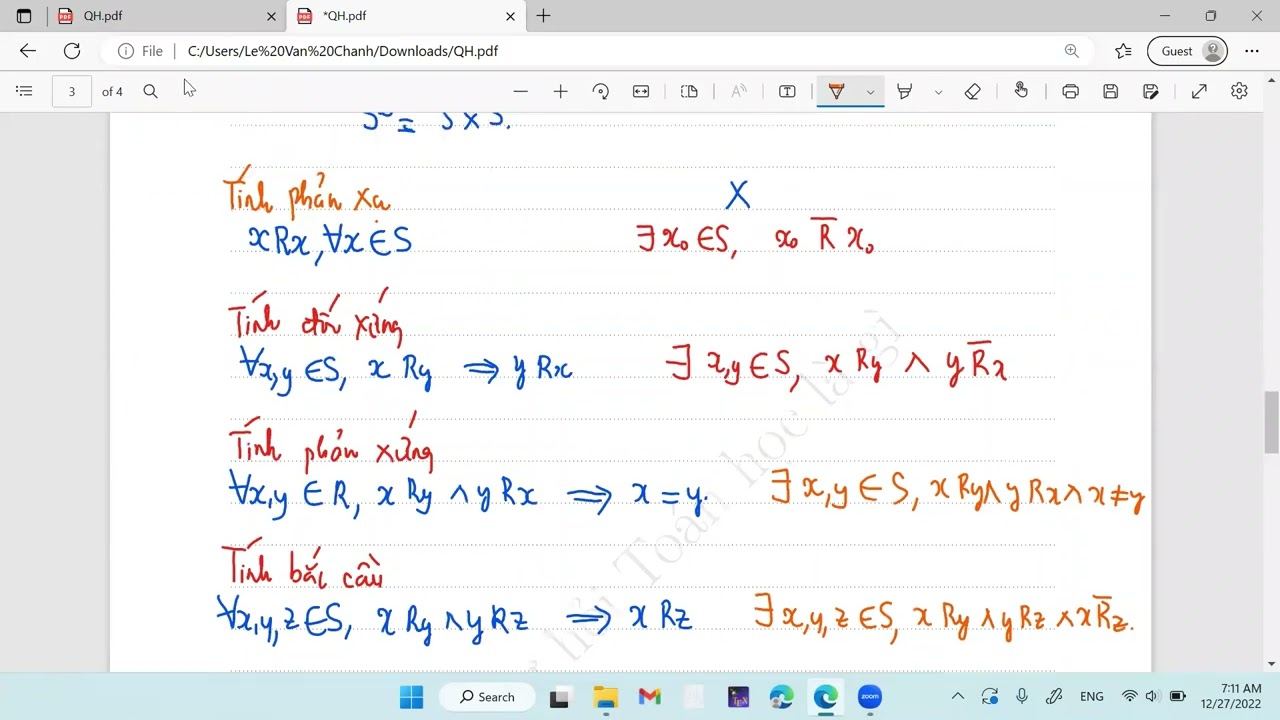 QH.pdf
*QH.pdf
File
C:/Users/Le%20Van%20Chanh/Downloads/QH.pdf
Guest
3 of 4
S² = S x S.
Tính phản xạ
X
xRx, ∀x ∈ S
∃ x₀ ∈ S, x₀ R̅ x₀
Tính đối xứng
∀x,y ∈ S, x Ry ⟹ y Rx
∃ x,y ∈ S, x Ry ∧ y R̅x
Tính phản xứng
∀x,y ∈ R, x Ry ∧ y Rx ⟹ x = y.
∃ x,y ∈ S, x Ry ∧ y Rx ∧ x ≠ y
Tính bắc cầu
∀x,y,z ∈ S, x Ry ∧ y Rz ⟹ x Rz
∃ x,y,z ∈ S, x Ry ∧ y Rz ∧ x R̅z.
Toán học là gì
Search
ENG
7:11 AM
12/27/2022